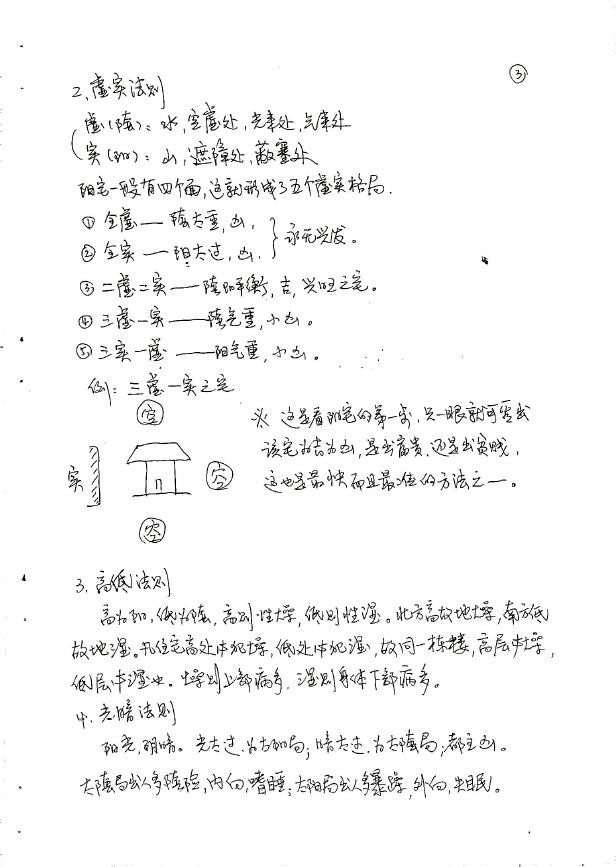 ③
2、虚实法则
虚(阴):水,空虚处,光来处,气来处
实(阳):山,遮障处,蔽塞处
阳宅一般有四个面,这就形成了五个虚实格局.
① 全虚——阴太重,凶,
② 全实——阳太过,凶, } 永无兴发。
③ 二虚二实——阴阳平衡,吉,兴旺之宅。
④ 三虚一实——阴气重,小凶。
⑤ 三实一虚——阳气重,小凶。
例:三虚一实之宅
空
※ 这是看阳宅的第一步,只一眼就可看出
该宅为吉为凶,是出富贵,还是出贫贱,
这也是最快而且最准的方法之一。
实
空
空
3.高低法则
高为阳,低为阴,高则性燥,低则性湿。北方高故地燥,南方低
故地湿。凡住宅高处体犯燥,低处体犯湿,故同一栋楼,高层中燥,
低层中湿也。燥则上部病多.湿则身体下部病多。
4.光暗法则
阳光,明暗。光太过.为太阳局;暗太过.为太阴局,都主凶。
太阴局出人多阴险,内向,嗜睡;太阳局出人多暴躁,外向,失眠。